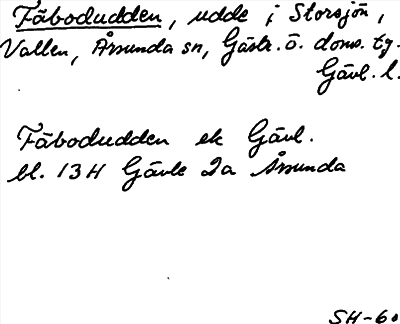 Fäbodudden, udde i Storsjön,
Vallen, Årsunda sn, Gästr. ö. doms. tg.
Gävl. l.
Fäbodudden ek Gävl.
bl. 13H Gävle 2a Årsunda
SH-60